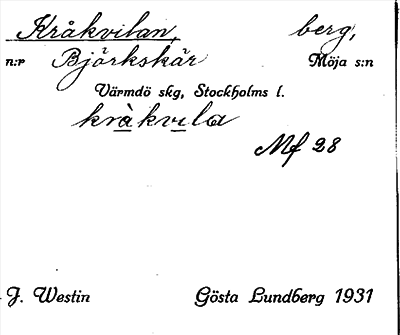 Kråkvilan, berg,
n:r Björkskär Möja s:n
Värmdö skg, Stockholms l.
kràkvila
Mf 28
J. Westin Gösta Lundberg 1931